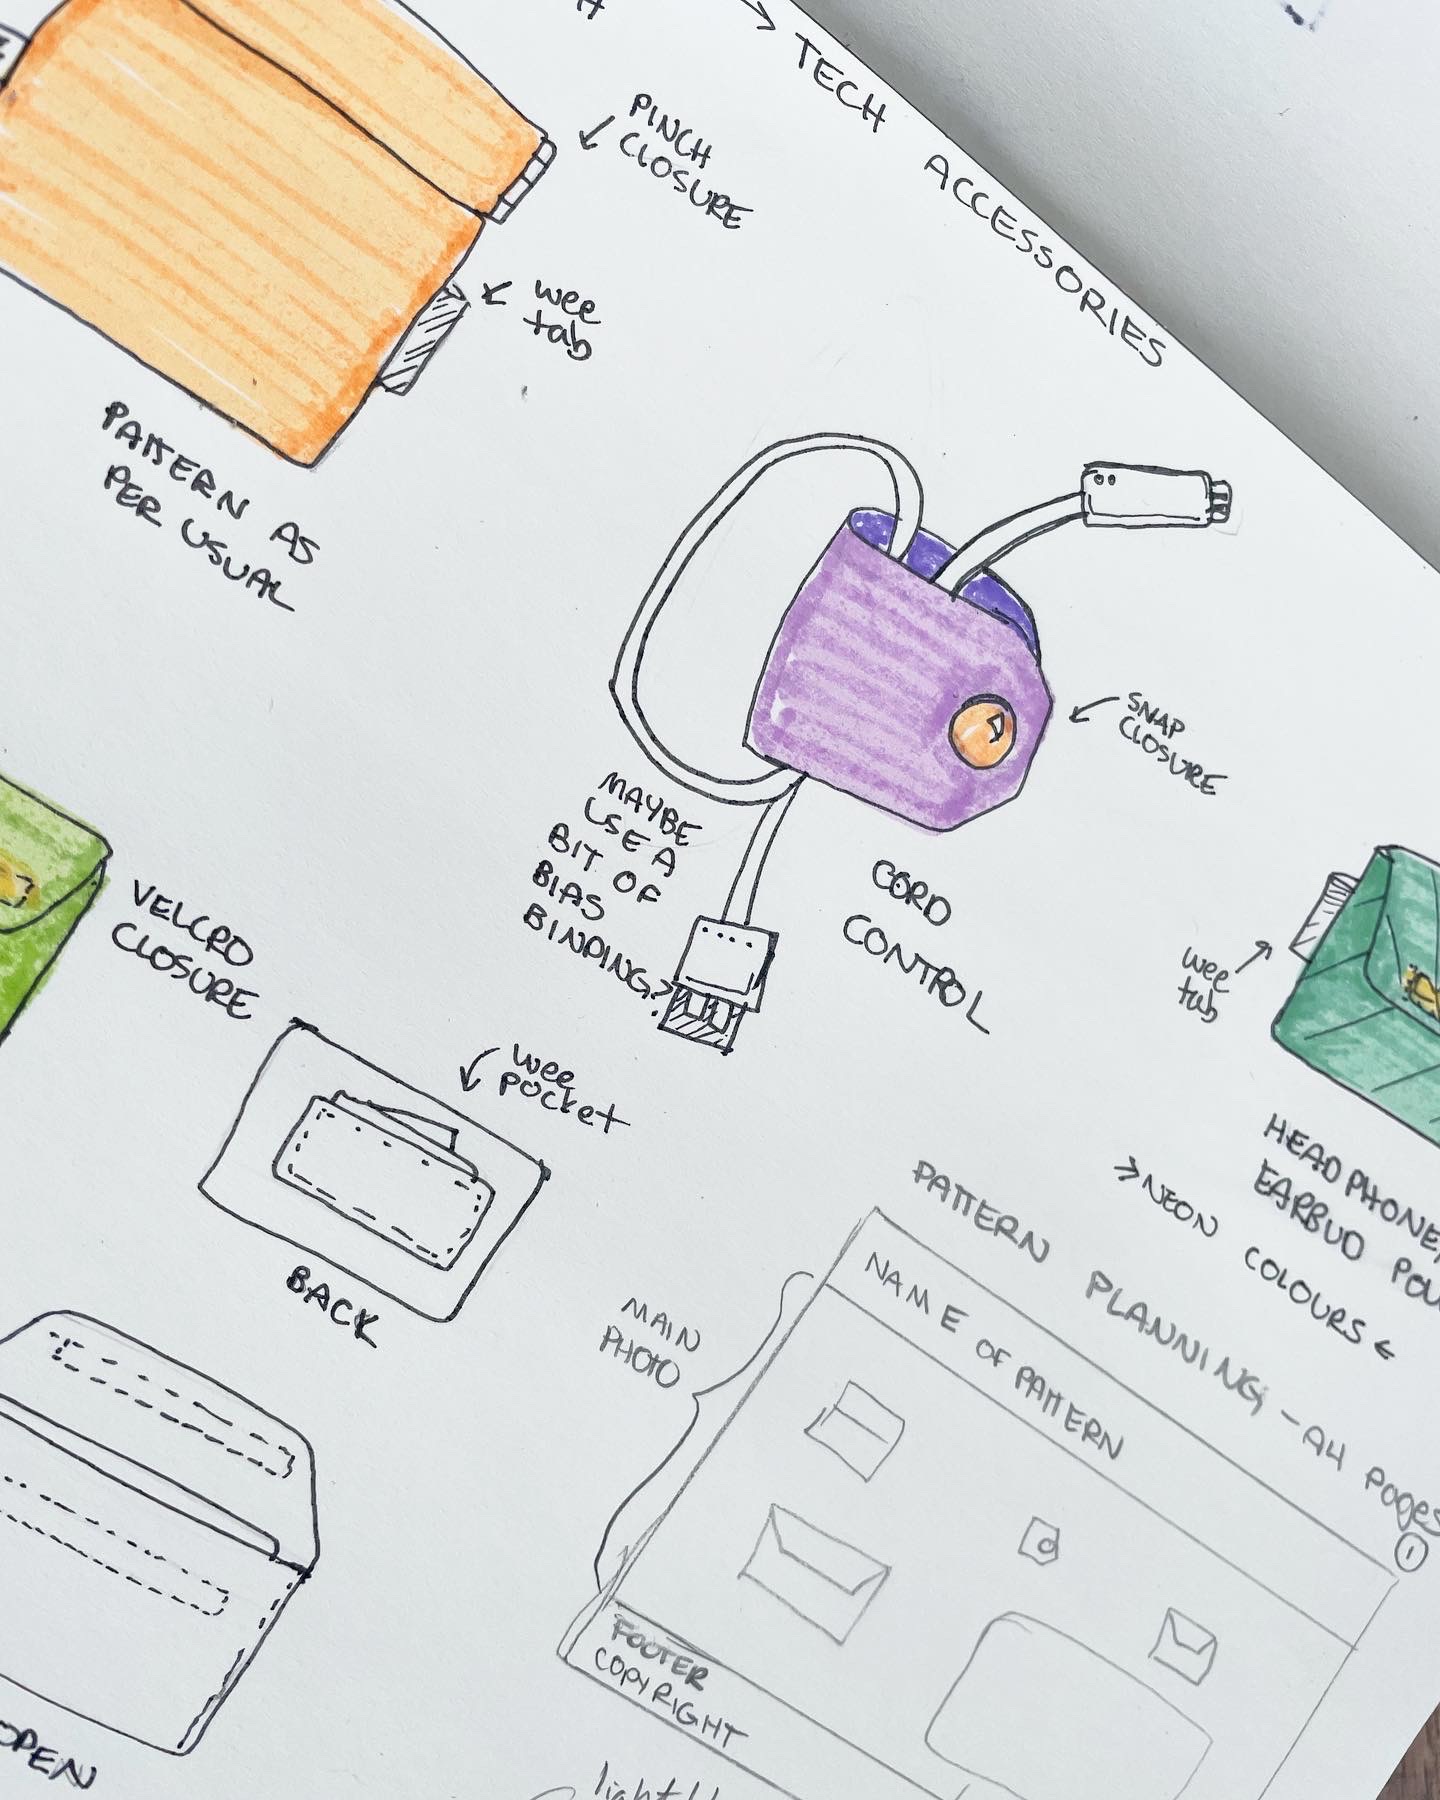 → TECH ACCESSORIES
PINCH
CLOSURE
wee
tab
PATTERN AS
PER USUAL
SNAP
CLOSURE
MAYBE
USE A
BIT OF
BIAS
BINDING?
CORD
CONTROL
VELCRO
CLOSURE
wee
tab
wee
pocket
BACK
HEADPHONE/
EARBUD
→ NEON COLOURS ←
PATTERN PLANNING - A4 pages
1
NAME OF PATTERN
MAIN
PHOTO
FOOTER
COPYRIGHT
OPEN